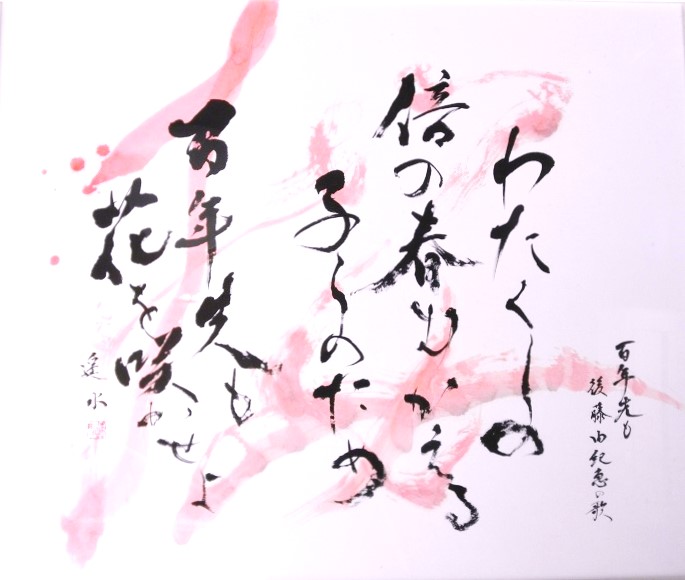 百年先も
後藤由紀恵の歌
わたくしの
倍の春むかえる
子らのため
百年先も
花を咲かせよ
遙水